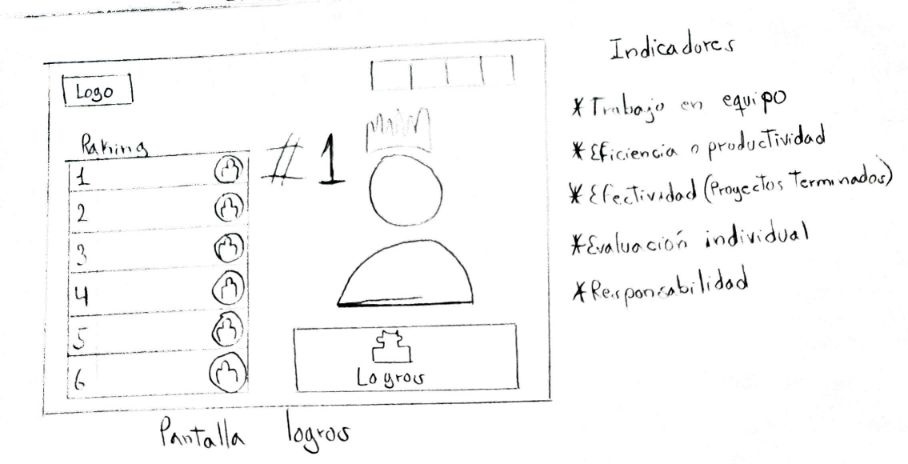 Logo
Raking
1
2
3
4
5
6
#1
Logros
Pantalla logros
Indicadores
* Trabajo en equipo
* Eficiencia o productividad
* Efectividad (Proyectos Terminados)
* Evaluación individual
* Responsabilidad